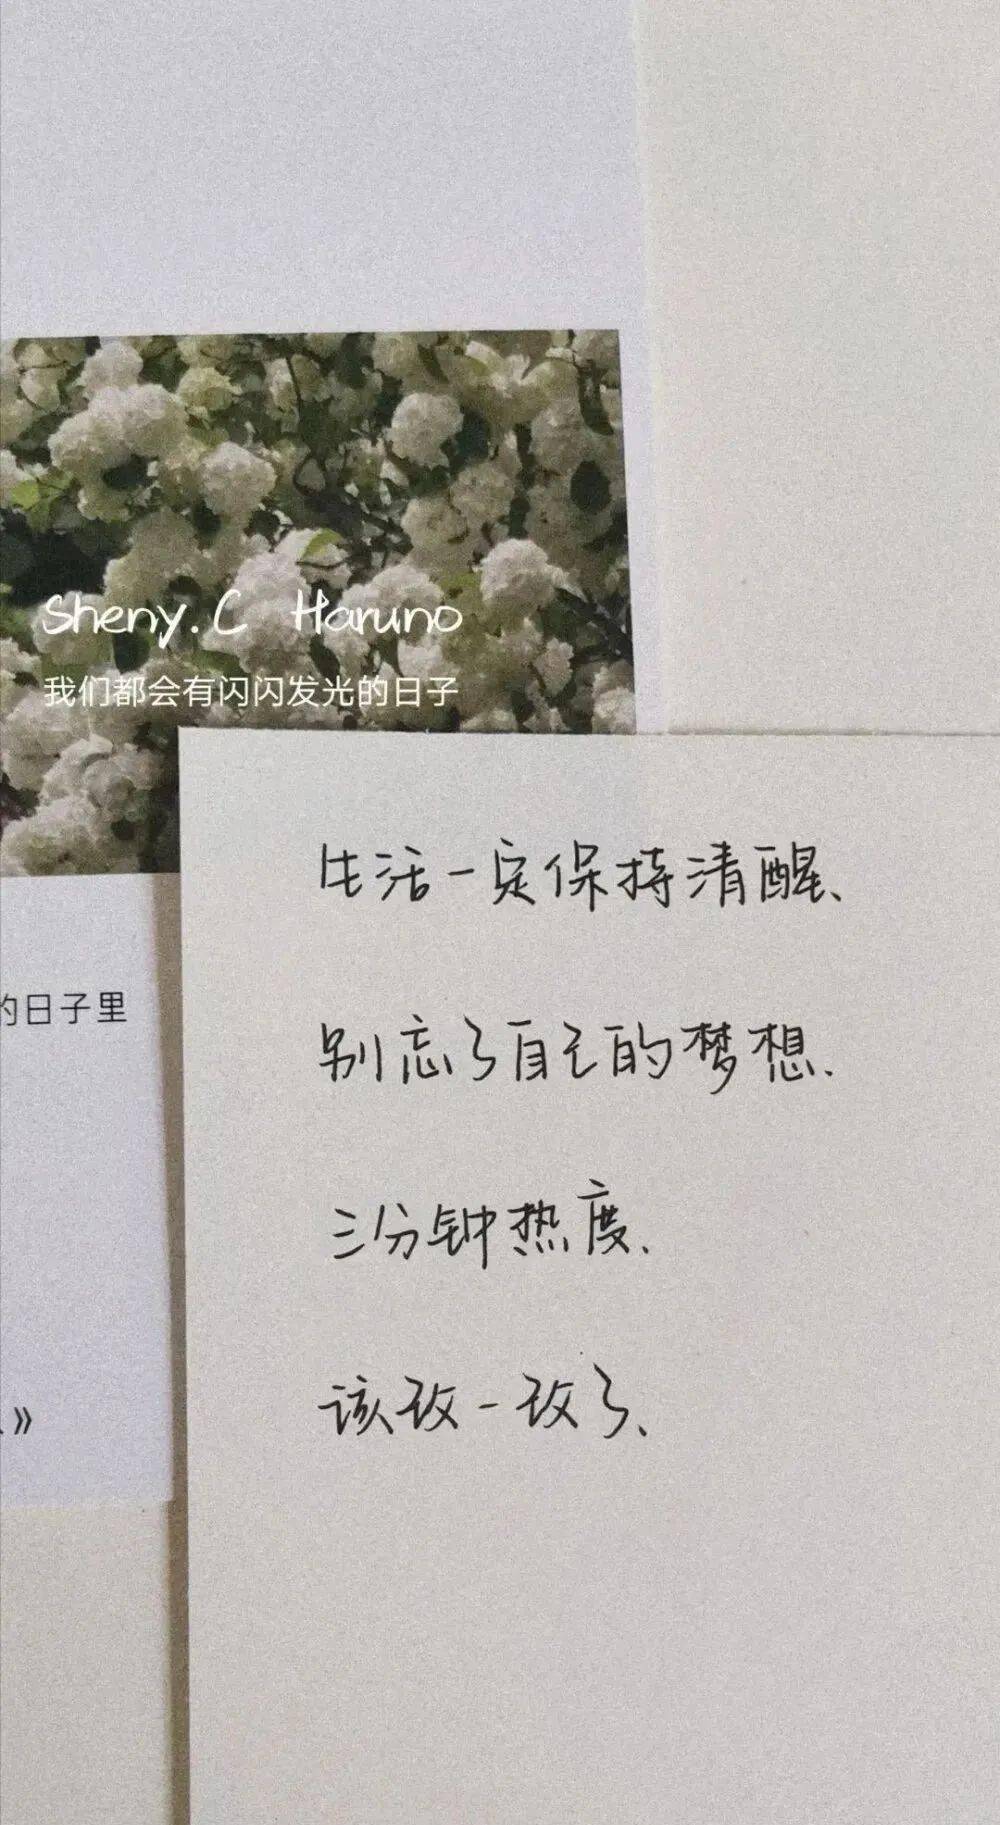 Sheny.C Haruno
我们都会有闪闪发光的日子
生活一定保持清醒、
别忘了自己的梦想.
三分钟热度.
该改一改了、
的日子里
》